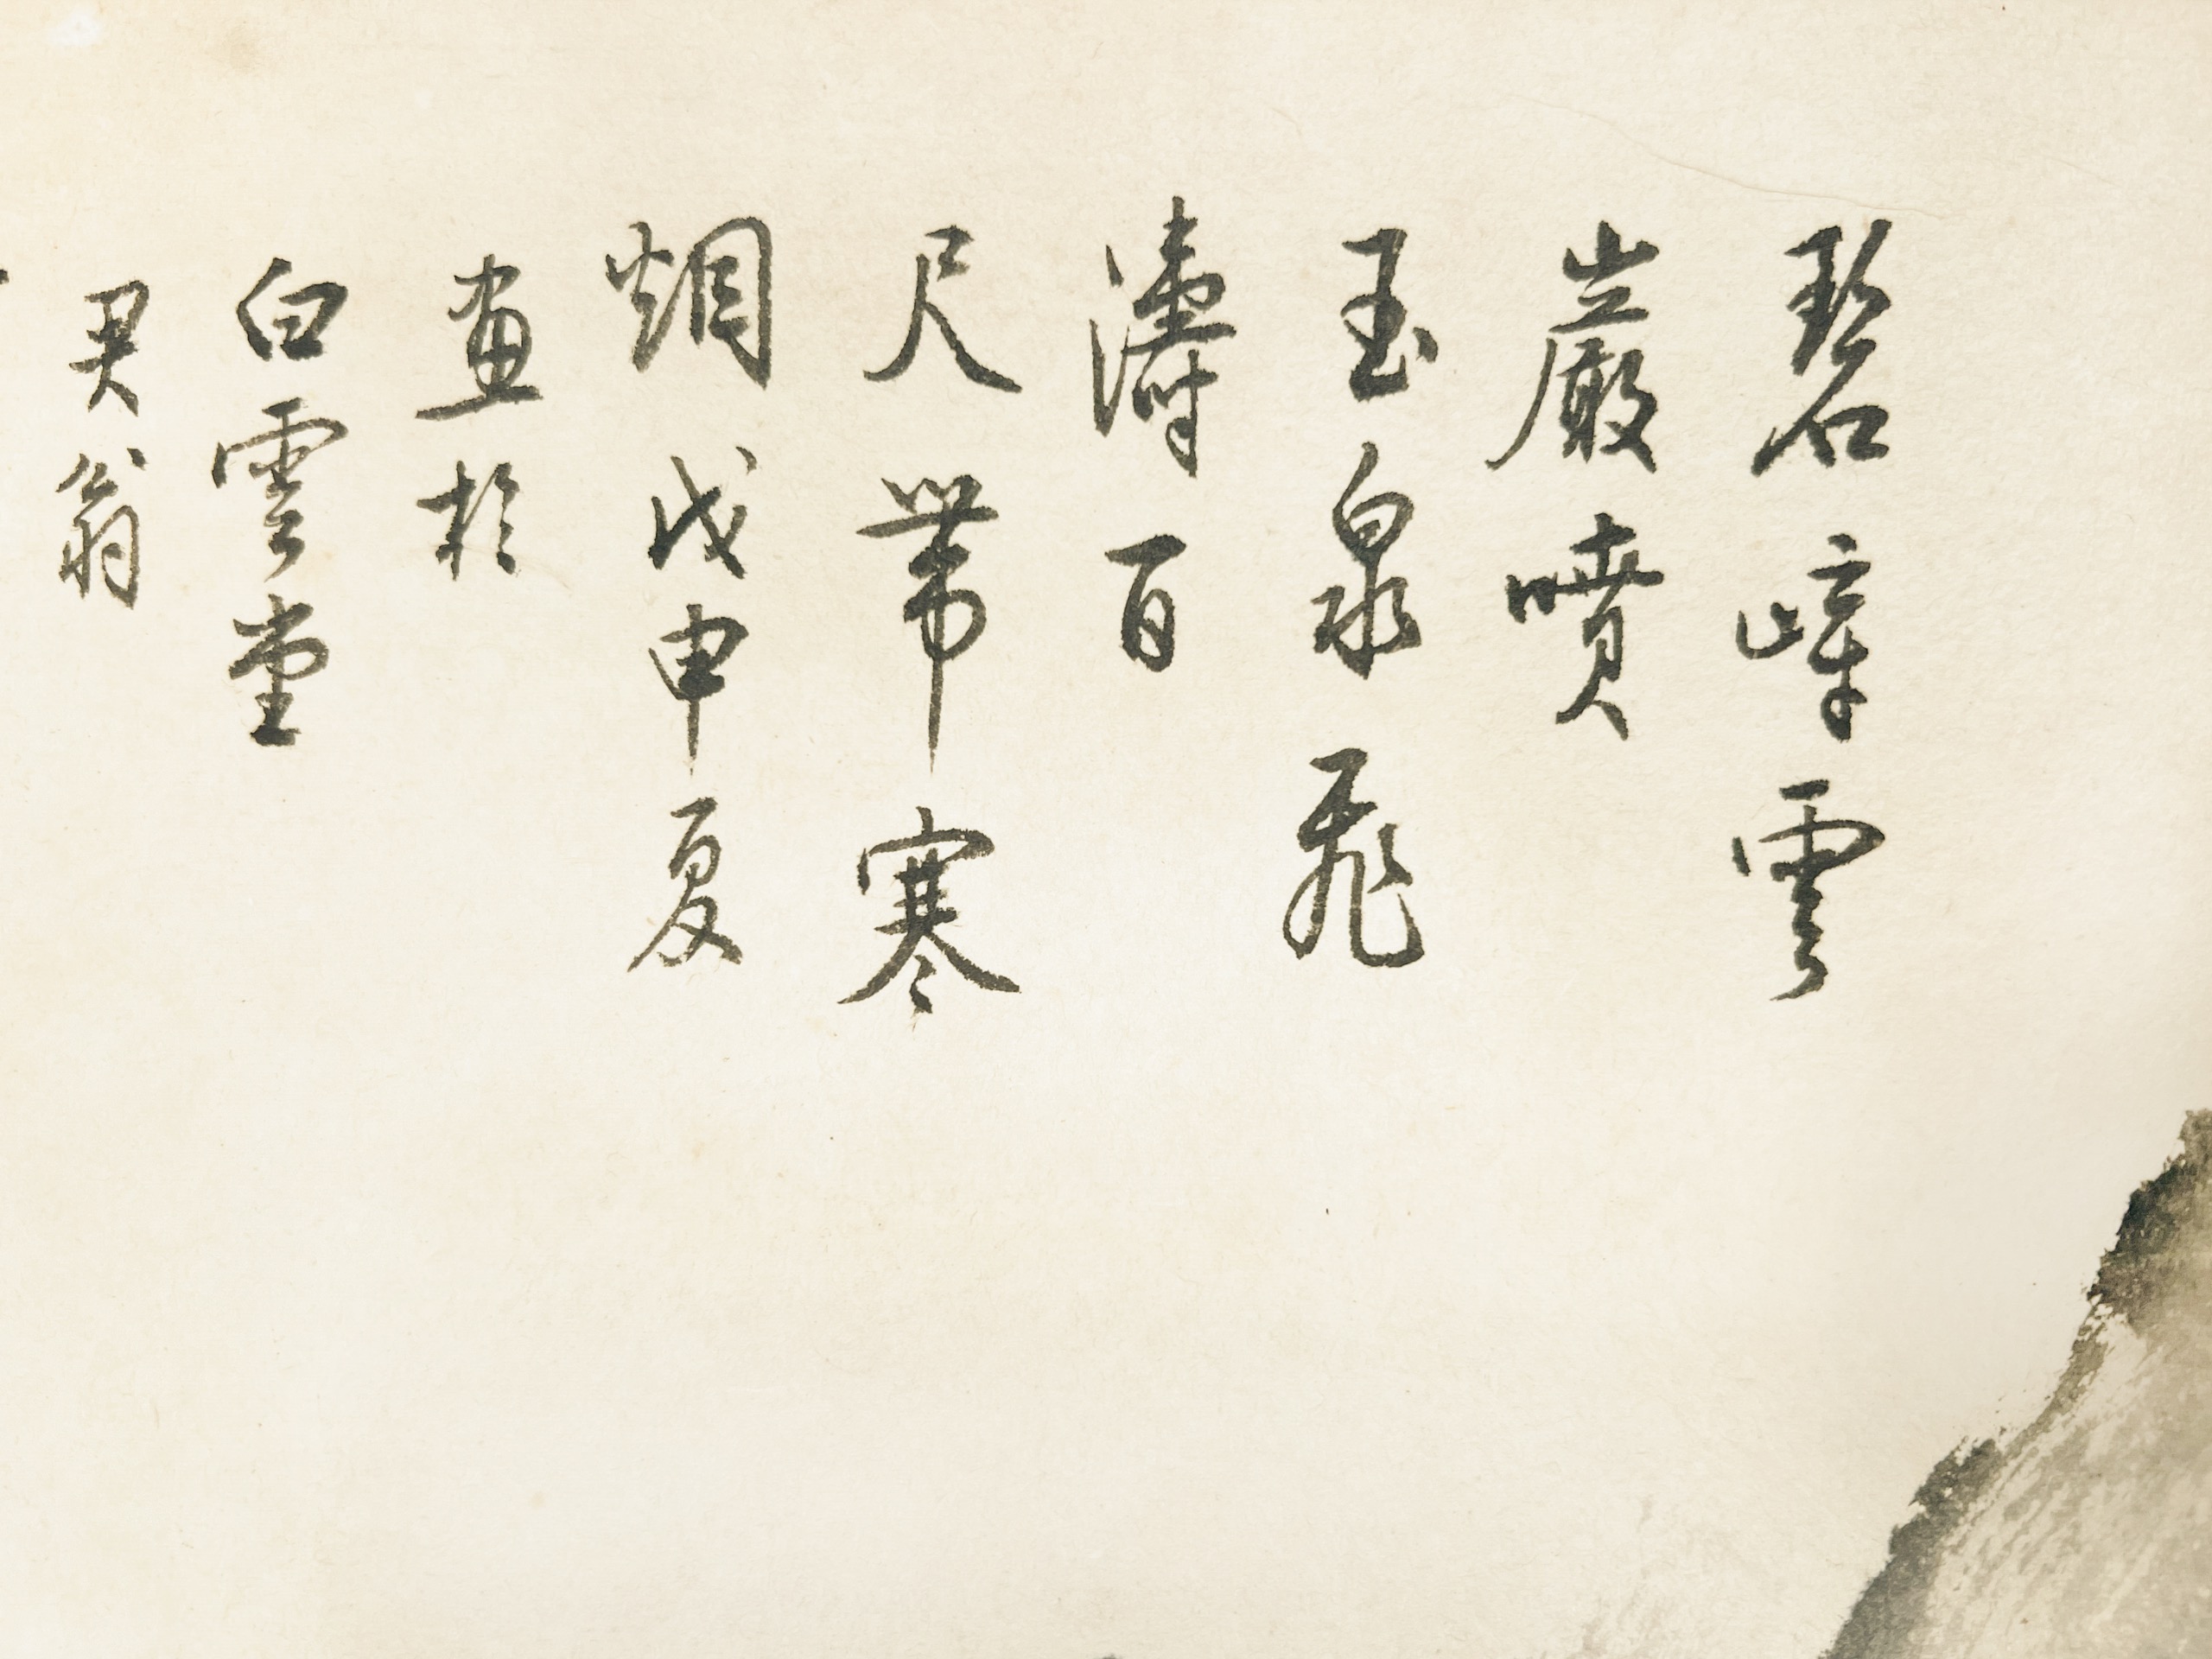 碧嶂雲
巖噴
玉泉飛
濤百
尺帶寒
烟戊申夏
畫於
白雲堂
君翁